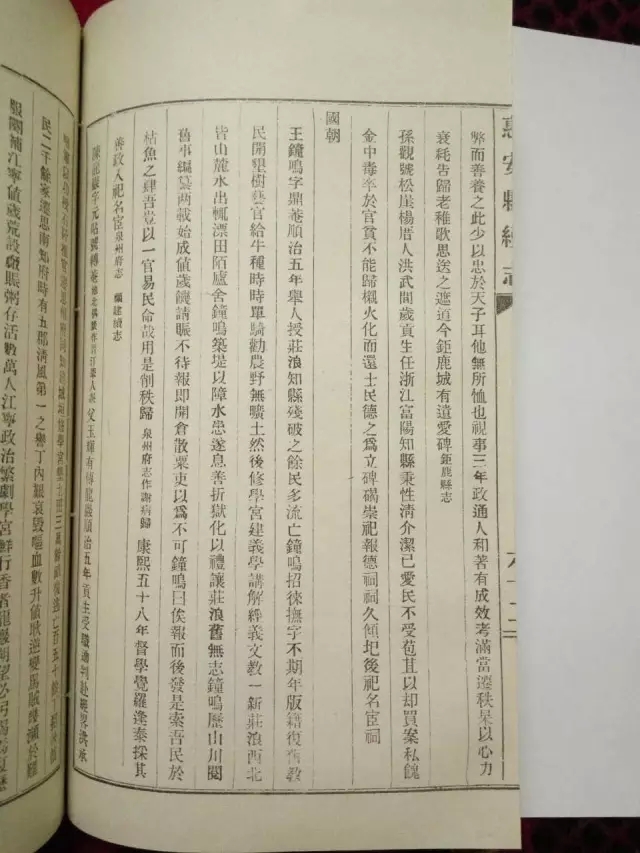 惠安縣續志
弊而善養之此少以忠於天子耳他無所恤也視事三年政通人和著有成效考滿當遷秩杲以心力
衰耗告歸老稚歌思送之遮道今鉅鹿城有遺愛碑鉅鹿縣志
孫觀號松崖楊厝人洪武間歲貢生任浙江富陽知縣秉性清介潔己愛民不受苞苴以却買案私餽
金中毒卒於官貧不能歸櫬火化而還士民德之爲立碑碣崇祀報德祠祠久傾圮後祀名宦祠
國朝
王鐘鳴字鼎菴順治五年舉人授莊浪知縣殘破之餘民多流亡鐘鳴招徠撫字不期年版籍復舊教
民開墾樹藝官給牛種時時單騎勸農野無曠土然後修學宮建義學講解經義文教一新莊浪西北
皆山麓水出輒漂田陌廬舍鐘鳴築堤以障水患遂息善折獄化以禮讓莊浪舊無志鐘鳴歷山川閱
舊事編纂兩載始成値歲饑請賑不待報即開倉散粟吏以爲不可鐘鳴曰俟報而後發是索吾民於
枯魚之肆吾豈以一官易民命哉用是削秩歸泉州府志作謝病歸康熙五十八年督學覺羅逢泰採其
善政入祀名宦泉州府志 福建續志
父玉輝有傳龍巖順治五年貢生受職通判
民二千餘家遷思南知府時有五郡清風第一之譽丁內艱哀毀嘔血數升値
艱闋補江寧値歲荒設糜賑粥存活數萬人江寧政治繁劇學宮